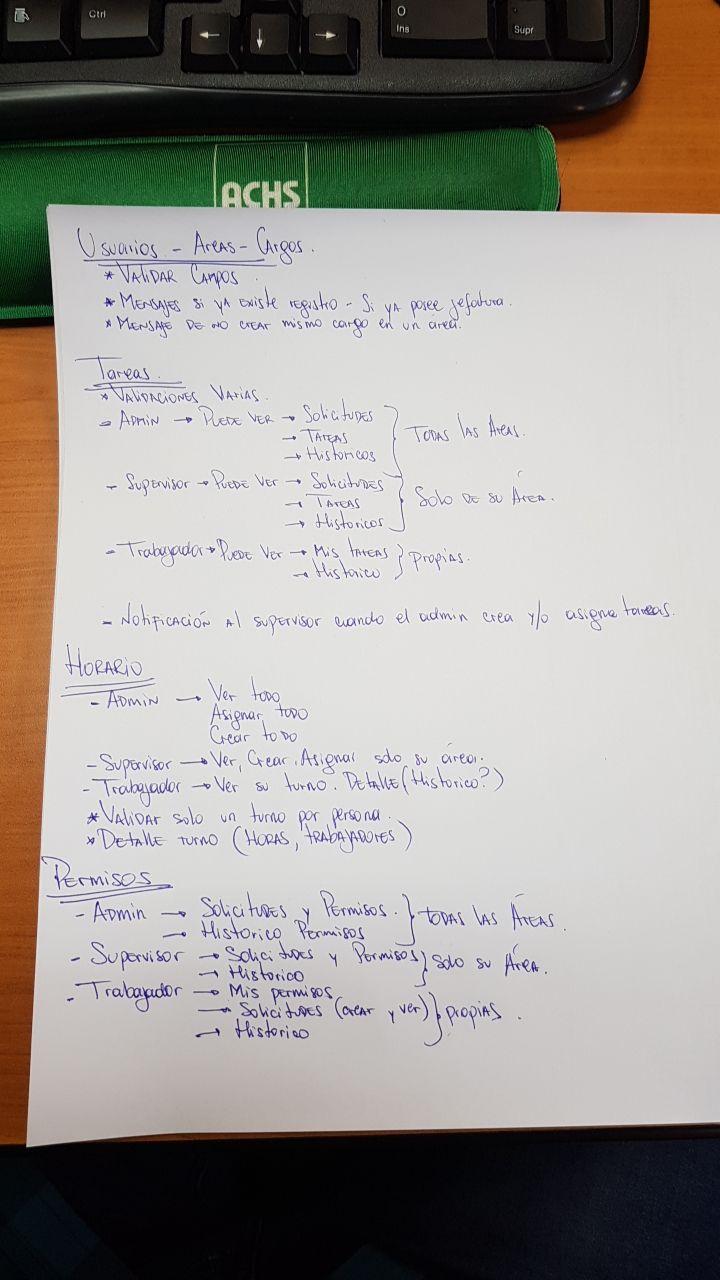 Ctrl
←
↓
→
0
Ins
Supr
ACHS
Usuarios - Areas - Cargos.
* Validar Campos
* Mensajes si ya existe registro - Si ya posee jefatura.
* Mensaje de no crear mismo cargo en un area.
Tareas.
* Validaciones Varias.
- Admin → Puede ver → Solicitudes
→ Tareas } Todas las Areas.
→ Historicos
- Supervisor → Puede ver → Solicitudes
→ Tareas } Solo de su Área.
→ Historicos
- Trabajador → Puede ver → Mis tareas } Propias.
→ Historico
- Notificación al supervisor cuando el admin crea y/o asigna tareas.
Horario
- Admin → Ver todo
Asignar todo
Crear todo
- Supervisor → Ver, Crear, Asignar solo su área.
- Trabajador → Ver su turno. Detalle (Historico?)
* Validar solo un turno por persona.
* Detalle turno (Horas, trabajadores)
Permisos
- Admin → Solicitudes y Permisos. } todas las Áreas.
→ Historico Permisos
- Supervisor → Solicitudes y Permisos } Solo su Área.
→ Historico
- Trabajador → Mis permisos
→ Solicitudes (crear y ver) } propias.
→ Historico